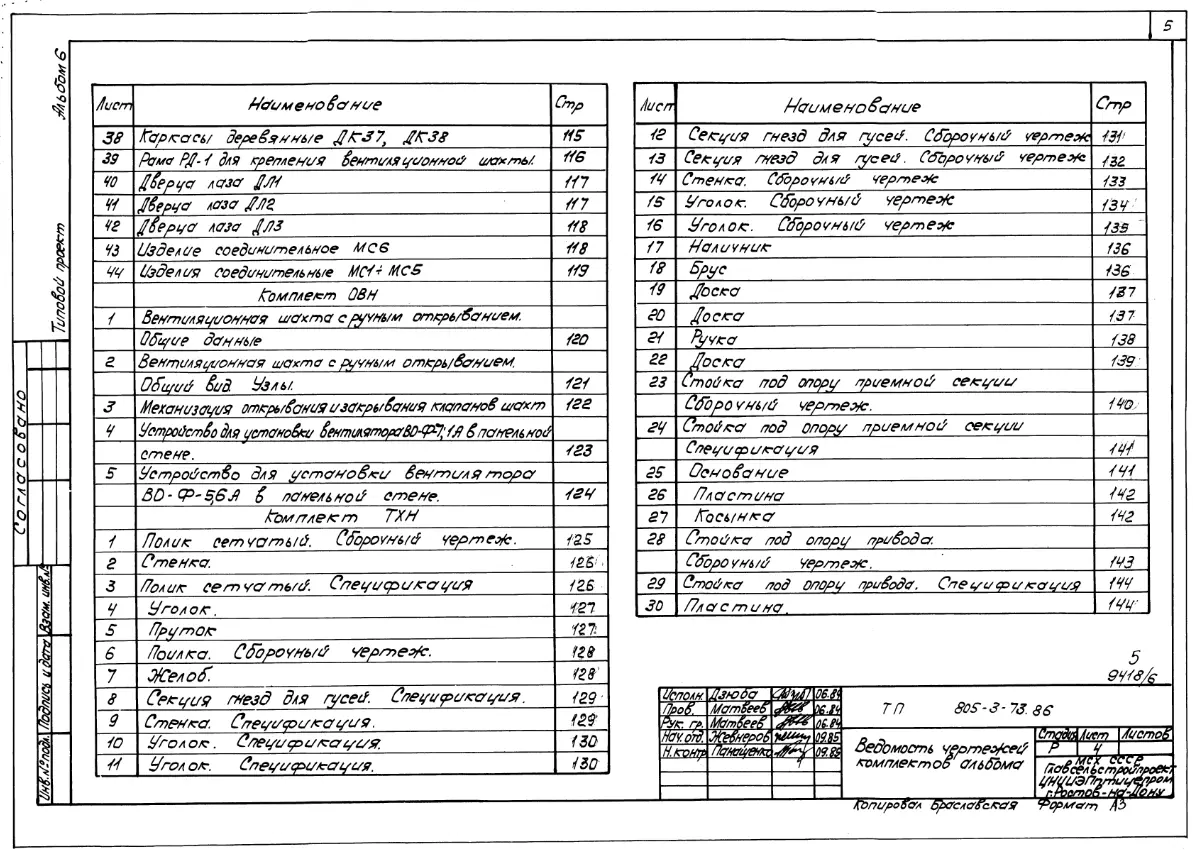 5
Альбом 6
Типовой проект
Согласовано
Инв.№подл. Подпись и дата Взам. инв.№
Лист Наименование Стр
38 Каркасы деревянные ДК-37, ДК38 115
39 Рама РД-1 для крепления вентиляционной шахты. 116
40 Дверца лаза ДЛ1 117
41 Дверца лаза ДЛ2 117
42 Дверца лаза ДЛ3 118
43 Изделие соединительное МС6 118
44 Изделия соединительные МС1÷МС5 119
Комплект ОВН
1 Вентиляционная шахта с ручным открыванием.
Общие данные 120
2 Вентиляционная шахта с ручным открыванием.
Общий вид Узлы. 121
3 Механизация открывания и закрывания клапанов шахт 122
4 Устройство для установки вентилятора ВО-Ф-7,1А в панельной
стене. 123
5 Устройство для установки вентилятора
ВО-Ф-5,6А в панельной стене. 124
Комплект ТХН
1 Полик сетчатый. Сборочный чертеж. 125
2 Стенка. 126
3 Полик сетчатый. Спецификация 126
4 Уголок. 127
5 Пруток 127
6 Поилка. Сборочный чертеж. 128
7 Желоб. 128
8 Секция гнезд для гусей. Спецификация. 129
9 Стенка. Спецификация. 129
10 Уголок. Спецификация. 130
11 Уголок. Спецификация. 130
Лист Наименование Стр
12 Секция гнезд для гусей. Сборочный чертеж 131
13 Секция гнезд для гусей. Сборочный чертеж 132
14 Стенка. Сборочный чертеж 133
15 Уголок. Сборочный чертеж 134
16 Уголок. Сборочный чертеж 135
17 Наличник 136
18 Брус 136
19 Доска 137
20 Доска 137
21 Ручка 138
22 Доска 139
23 Стойка под опору приемной секции
Сборочный чертеж. 140
24 Стойка под опору приемной секции
Спецификация 141
25 Основание 141
26 Пластина 142
27 Косынка 142
28 Стойка под опору привода.
Сборочный чертеж. 143
29 Стойка под опору привода. Спецификация 144
30 Пластина. 144
5
9418/6
Исполн. Дзюба 06.84
Пров. Матвеев 06.84
Рук. гр. Матвеев 06.84
Нач.отд. Жевнеров 09.85
Н.контр Панащенко 09.85
ТП 805-3-73.86
Ведомость чертежей
комплектов альбома
Стадия Лист Листов
Р 4
МСХ СССР
Главсельстройпроект
ЦНИИЭПптицепром
г.Ростов-на-Дону
Копировал Браславская Формат А3